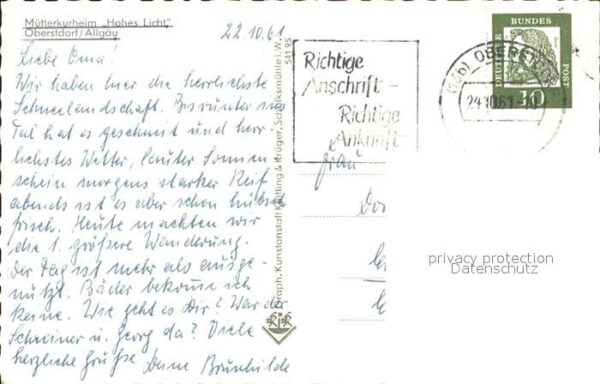 Mütterkurheim „Hohes Licht"
Oberstdorf/Allgäu
22.10.61
Liebe Oma!
Wir haben hier die herrlichste
Schneelandschaft. Bis runter ins
Tal hat es geschneit und herr-
lichstes Wetter, lauter Sonnen
schein morgens starker Reif
abends ist es aber schon hübsch
frisch. Heute machten wir
die 1. größere Wanderung.
Der Tag ist mehr als ausge-
nützt. Bäder bekomme ich
keine. Wie geht es Dir? War der
Schreiner u. Georg da? Viele
herzliche Grüße Deine Brunhilde
Graph. Kunstanstalt Kettling & Krüger, Schalksmühle i. W.
541 95
Richtige
Anschrift -
Richtige
Ankunft
DEUTSCHE BUNDES POST
10
24.10.61
Frau
privacy protection
Datenschutz